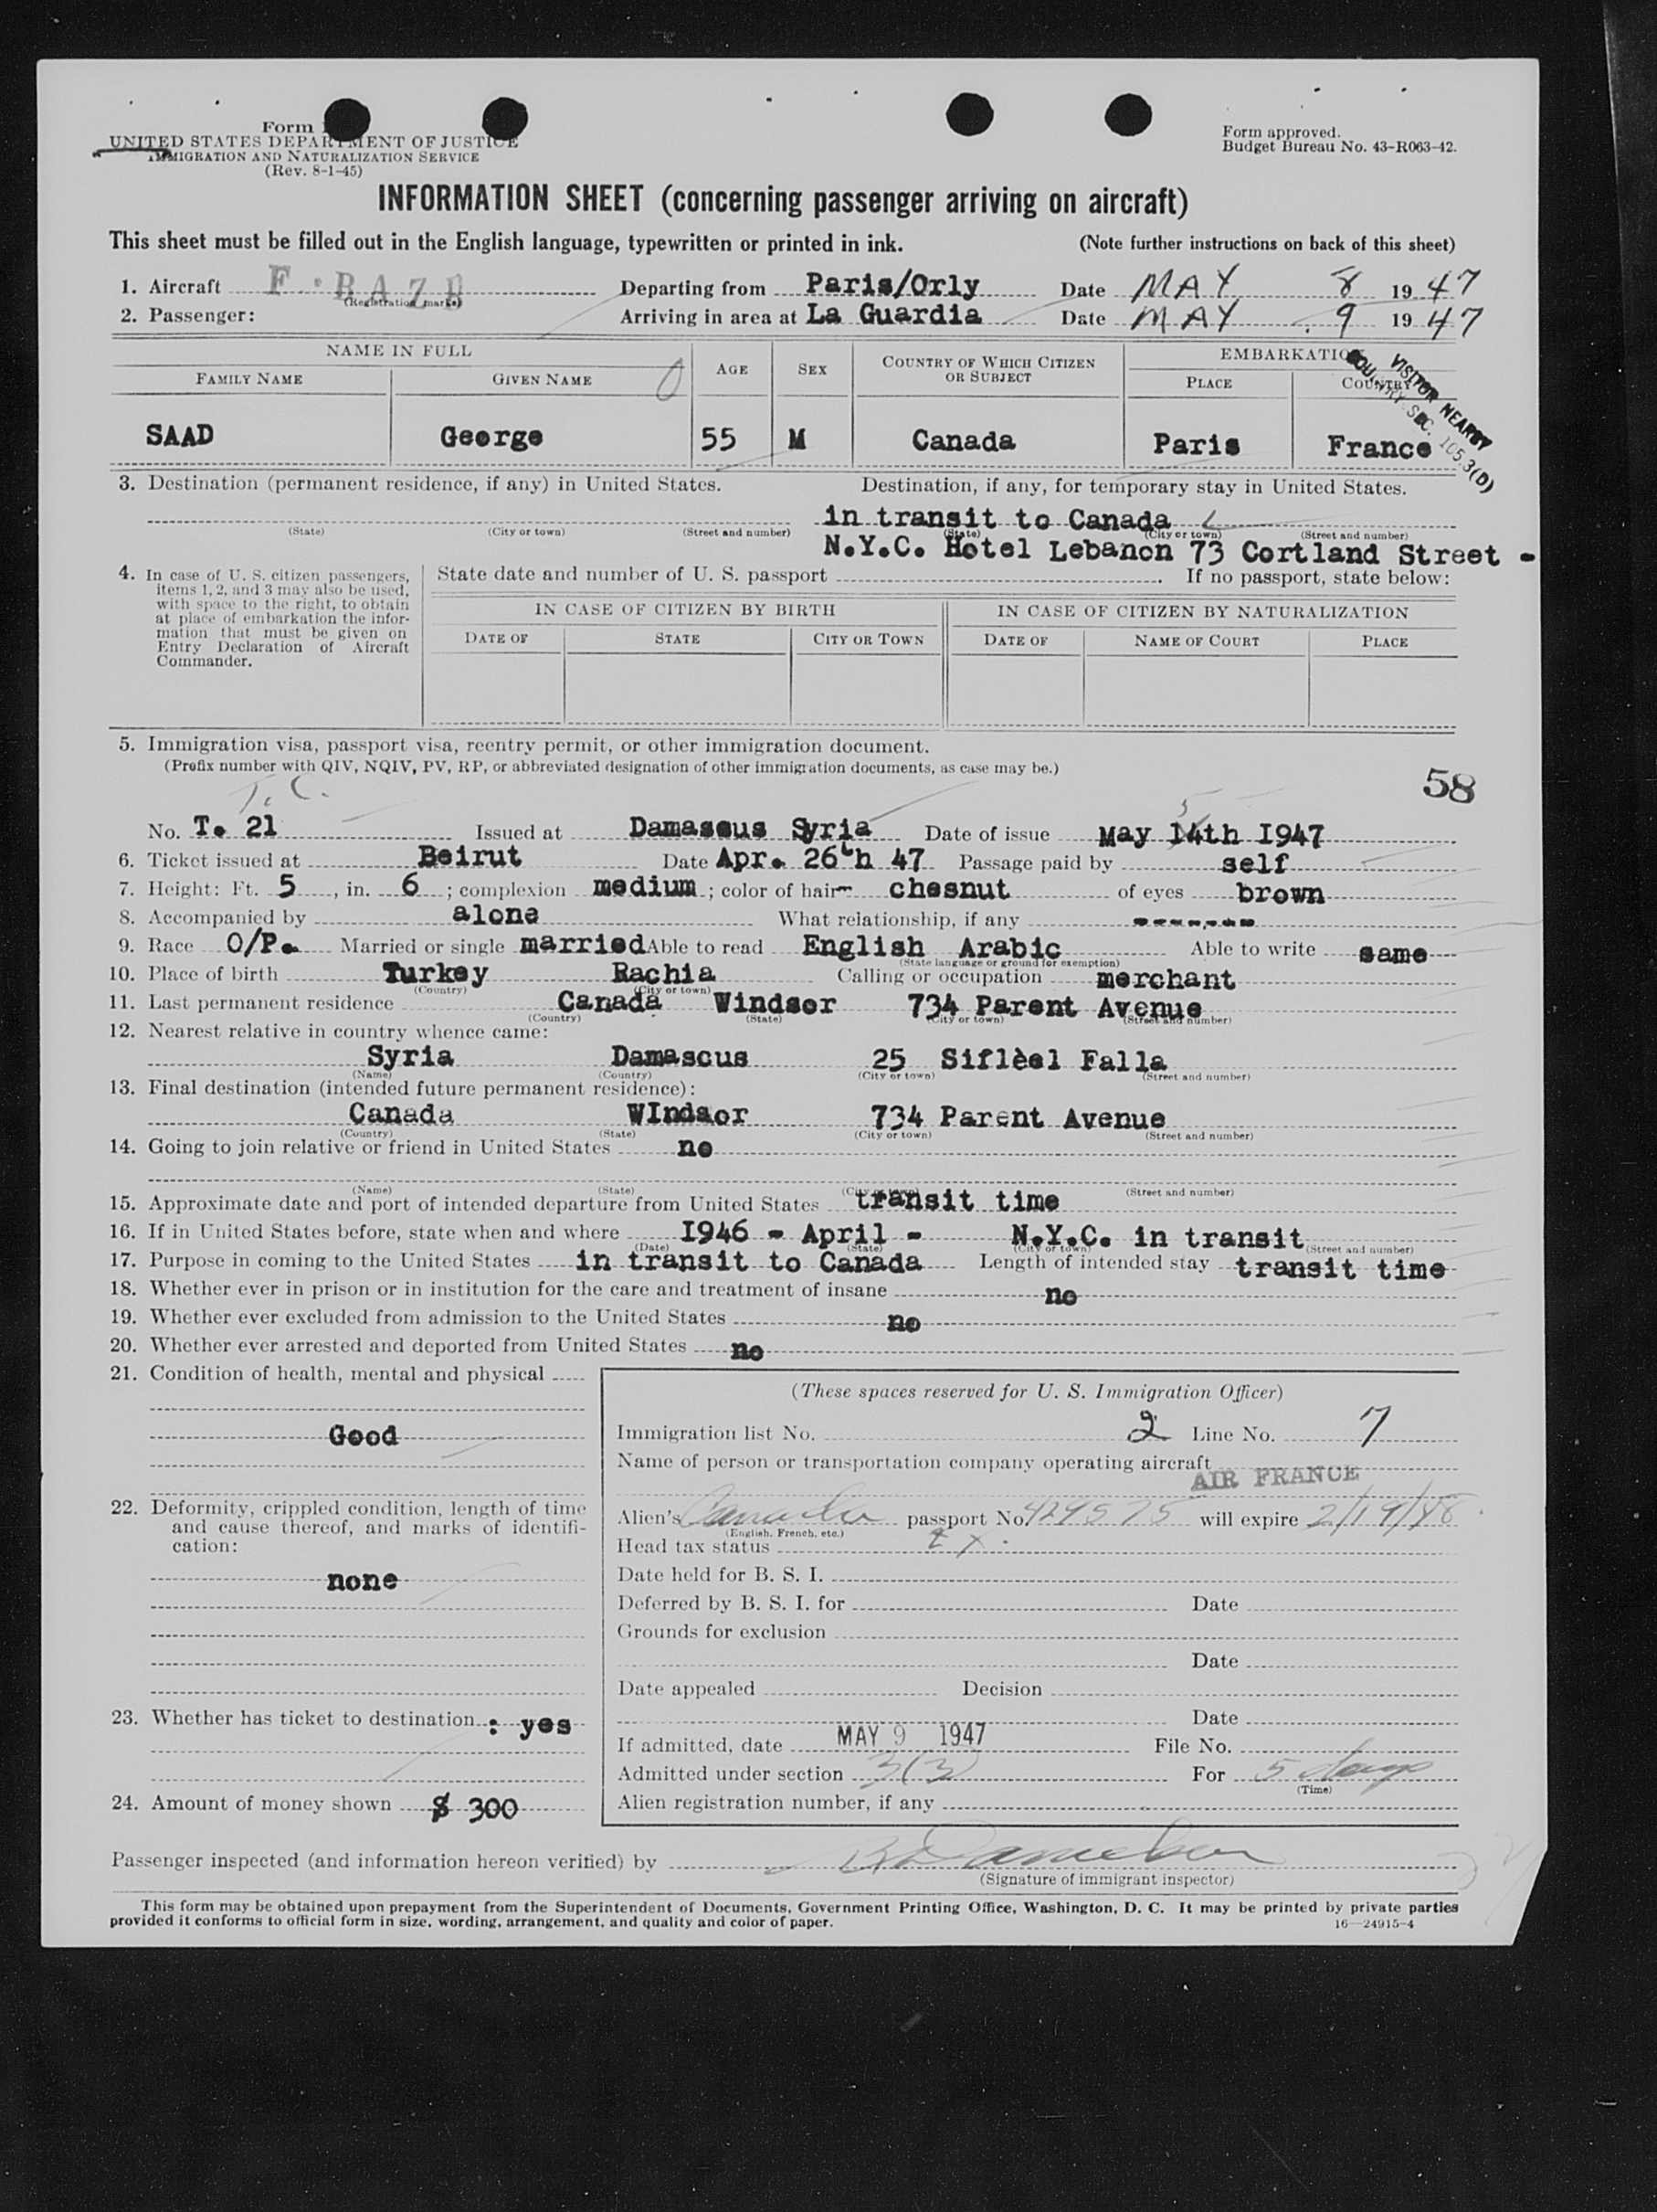 Form
UNITED STATES DEPARTMENT OF JUSTICE
IMMIGRATION AND NATURALIZATION SERVICE
(Rev. 8-1-45)
Form approved.
Budget Bureau No. 43-R063-42.
INFORMATION SHEET (concerning passenger arriving on aircraft)
This sheet must be filled out in the English language, typewritten or printed in ink. (Note further instructions on back of this sheet)
1. Aircraft F·BAZB Departing from Paris/Orly Date MAY 8 1947
(Registration marks)
2. Passenger: Arriving in area at La Guardia Date MAY 9 1947
NAME IN FULL AGE SEX COUNTRY OF WHICH CITIZEN OR SUBJECT EMBARKATION
FAMILY NAME GIVEN NAME PLACE COUNTRY
VISITOR NEARBY
COUNTRY SEC. 105.3(D)
SAAD George 55 M Canada Paris France
3. Destination (permanent residence, if any) in United States. Destination, if any, for temporary stay in United States.
in transit to Canada
(State) (City or town) (Street and number) (State) (City or town) (Street and number)
N.Y.C. Hotel Lebanon 73 Cortland Street -
4. In case of U. S. citizen passengers, items 1, 2, and 3 may also be used, with space to the right, to obtain at place of embarkation the information that must be given on Entry Declaration of Aircraft Commander.
State date and number of U. S. passport If no passport, state below:
IN CASE OF CITIZEN BY BIRTH IN CASE OF CITIZEN BY NATURALIZATION
DATE OF STATE CITY OR TOWN DATE OF NAME OF COURT PLACE
5. Immigration visa, passport visa, reentry permit, or other immigration document.
(Prefix number with QIV, NQIV, PV, RP, or abbreviated designation of other immigration documents, as case may be.)
58
T. C. 5
No. T. 21 Issued at Damascus Syria Date of issue May 14th I947
6. Ticket issued at Beirut Date Apr. 26th 47 Passage paid by self
7. Height: Ft. 5, in. 6; complexion medium; color of hair chesnut of eyes brown
8. Accompanied by alone What relationship, if any -------
9. Race O/P. Married or single married Able to read English Arabic Able to write same
(State language or ground for exemption)
10. Place of birth Turkey Rachia Calling or occupation merchant
(Country) (City or town)
11. Last permanent residence Canada Windsor 734 Parent Avenue
(Country) (State) (City or town) (Street and number)
12. Nearest relative in country whence came:
Syria Damascus 25 Siflèel Falla
(Name) (Country) (City or town) (Street and number)
13. Final destination (intended future permanent residence):
Canada WIndsor 734 Parent Avenue
(Country) (State) (City or town) (Street and number)
14. Going to join relative or friend in United States no
(Name) (State) (City or town) (Street and number)
15. Approximate date and port of intended departure from United States transit time
16. If in United States before, state when and where I946 - April - N.Y.C. in transit
(Date) (State) (City or town) (Street and number)
17. Purpose in coming to the United States in transit to Canada Length of intended stay transit time
18. Whether ever in prison or in institution for the care and treatment of insane no
19. Whether ever excluded from admission to the United States no
20. Whether ever arrested and deported from United States no
21. Condition of health, mental and physical
Good
22. Deformity, crippled condition, length of time and cause thereof, and marks of identification:
none
23. Whether has ticket to destination : yes
24. Amount of money shown $ 300
(These spaces reserved for U. S. Immigration Officer)
Immigration list No. 2 Line No. 7
Name of person or transportation company operating aircraft
AIR FRANCE
Alien's Canada passport No. 429575 will expire 2/19/48
(English, French, etc.)
Head tax status
Date held for B. S. I.
Deferred by B. S. I. for Date
Grounds for exclusion
Date
Date appealed Decision
Date
If admitted, date MAY 9 1947 File No.
Admitted under section 3(3) For 5 days
(Time)
Alien registration number, if any
Passenger inspected (and information hereon verified) by
(Signature of immigrant inspector)
This form may be obtained upon prepayment from the Superintendent of Documents, Government Printing Office, Washington, D. C. It may be printed by private parties
provided it conforms to official form in size, wording, arrangement, and quality and color of paper. 16—24915-4